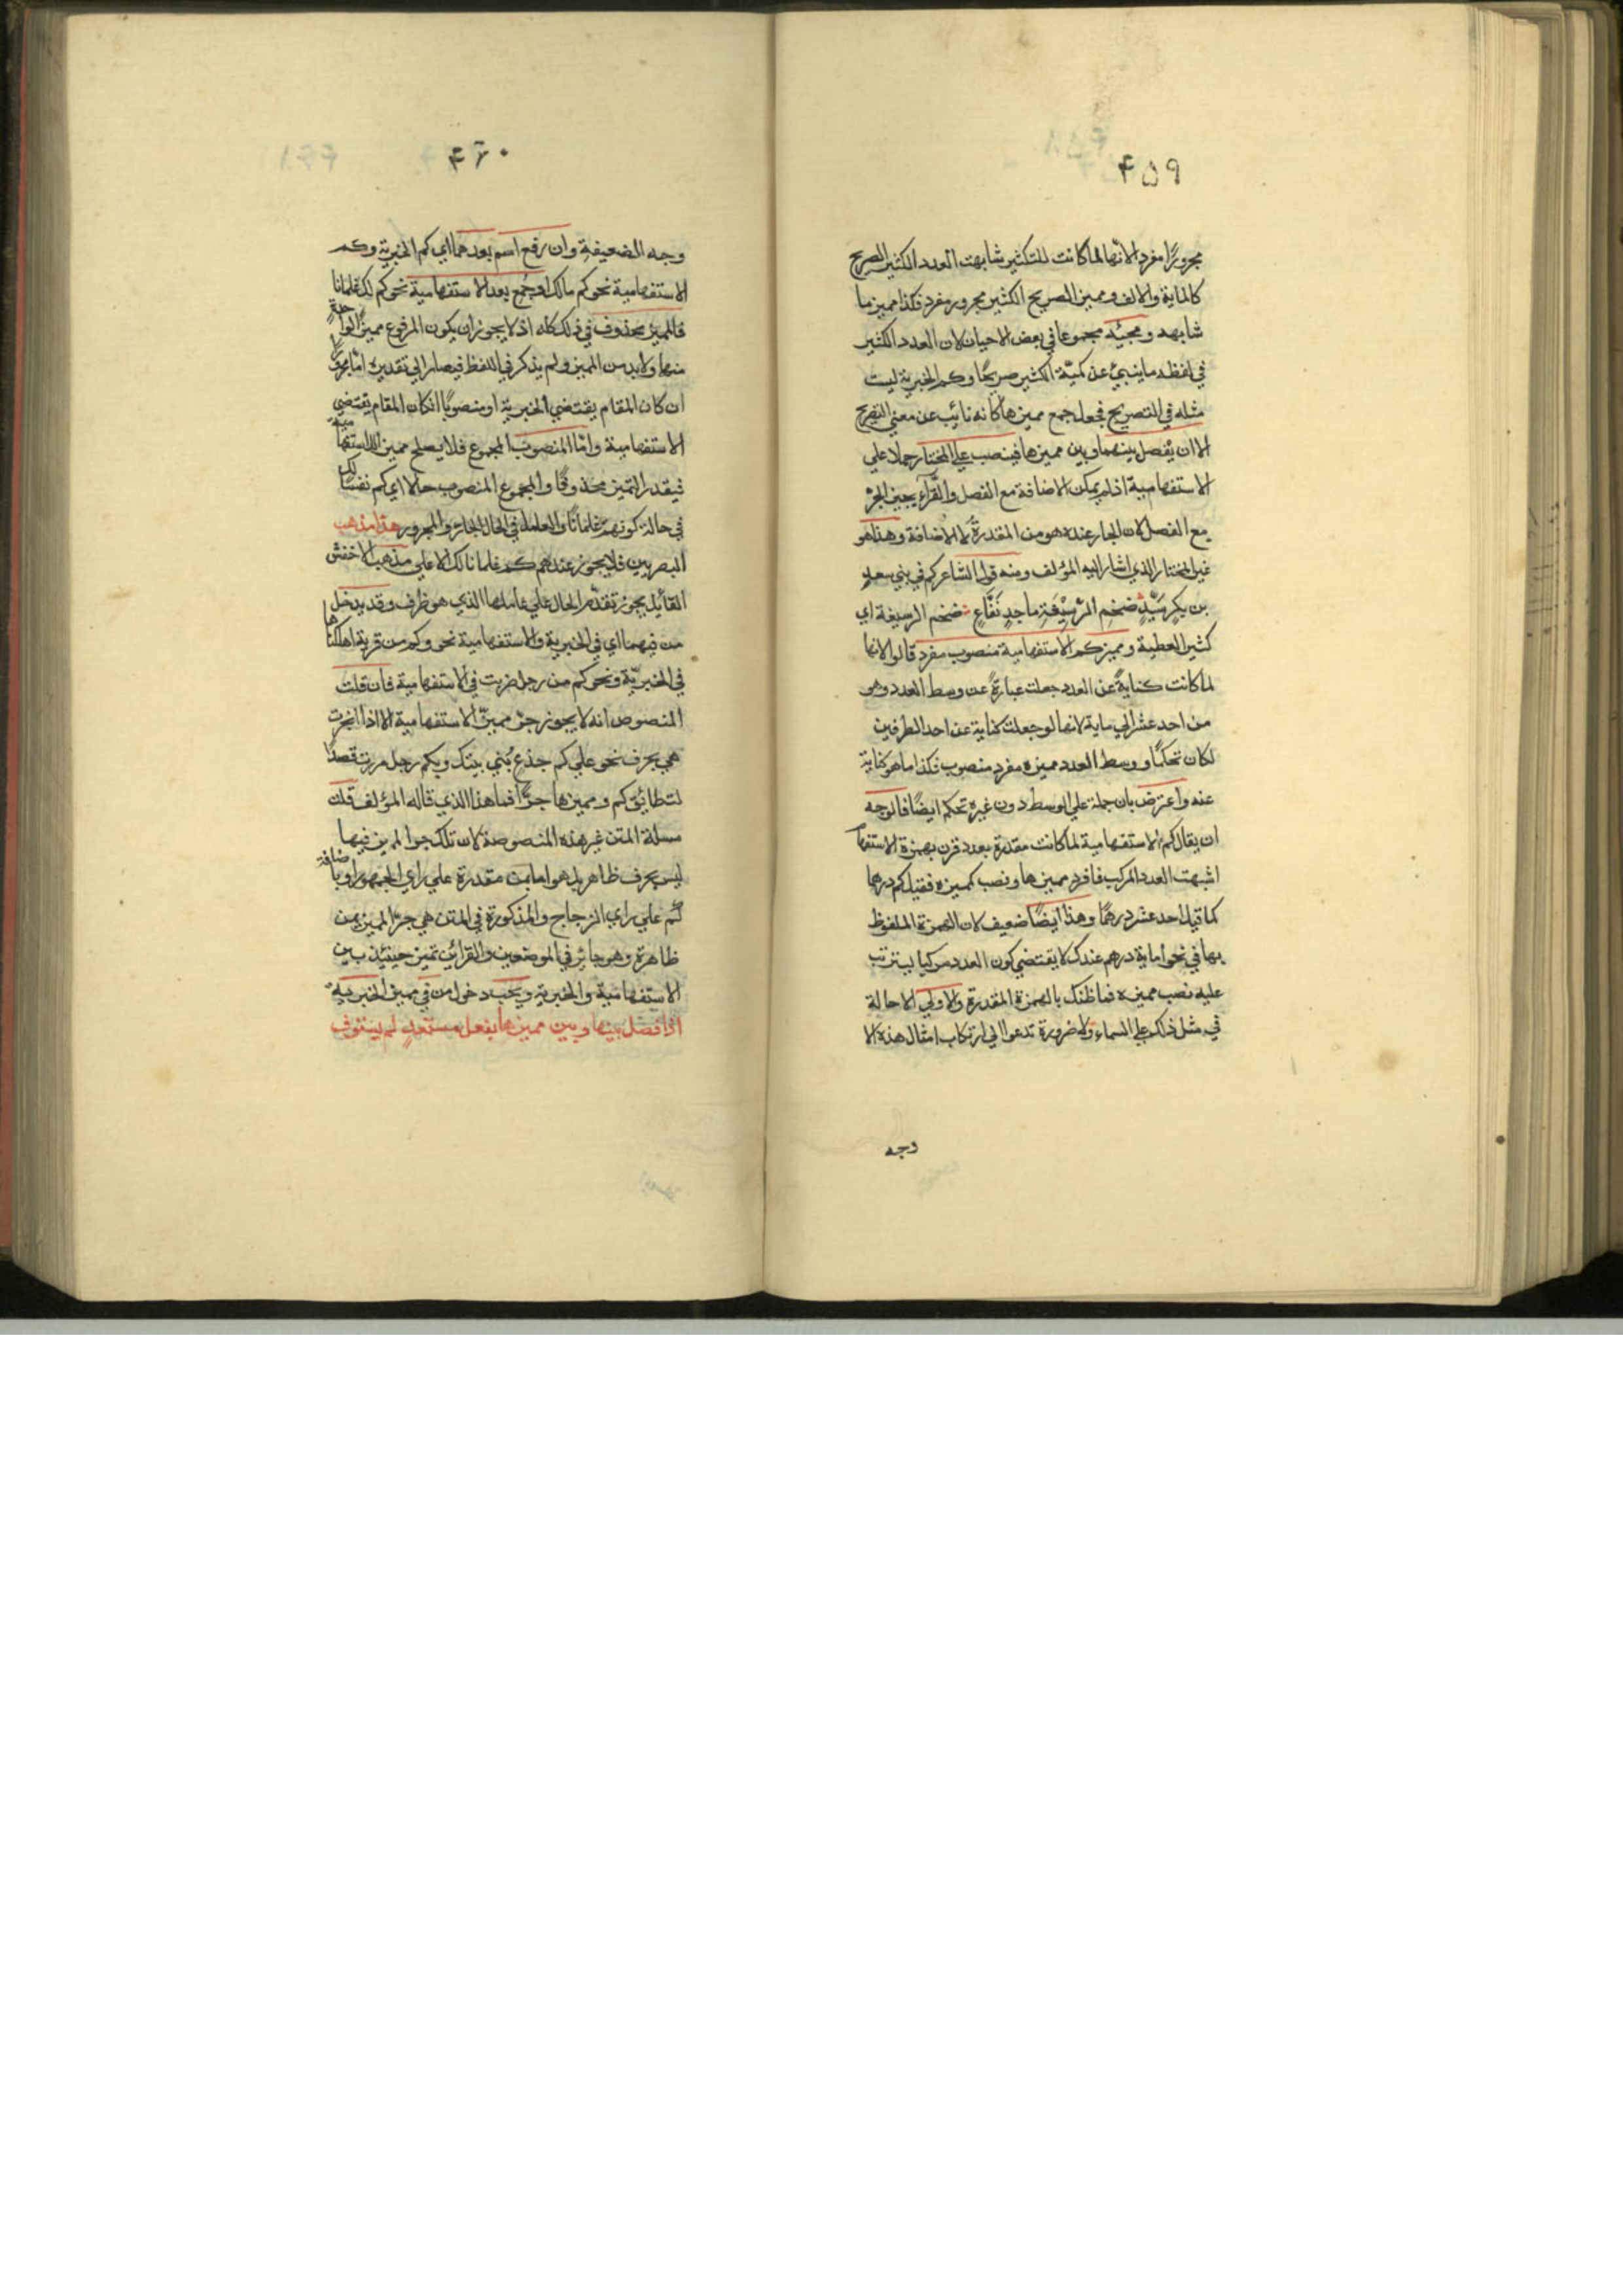 ٤٥٩
مجرورًا مفرد لانّها لما كانت للتكثير شابهت العدد الكثير الصريح
كالماية والالف ومميز الصريح الكثير مجرور مفرد فكذا مميز ما
شابهه ومجيئه مجموعا في بعض الاحيان لان العدد الكثير
في لفظه ما ينبئ عن كميّة الكثير صريحًا وكم الخبرية ليست
مثله في التصريح فجعل جمع مميزها كانه نائب عن معنى التصريح
الا ان يفصل بينهما وبين مميزها فينصب على المختار حملا على
الاستفهامية اذ لم يمكن الاضافة مع الفصل والفرّاء يجيز الجرّ
مع الفصل لان الجار عنده هو من المقدرة لا الاضافة وهذا هو
غير المختار الذي اشار اليه المؤلف ومنه قول الشاعر كم في بني سعد
بن بكر سيّدٍ ضخمِ الدّسيعةِ ماجدٍ نفّاعِ ضخم الدسيعة اي
كثير العطية ومميز كم الاستفهامية منصوب مفرد قالوا لانها
لما كانت كنايةً عن العدد جعلت عبارةً عن وسط العدد وهو
من احد عشر الى ماية لانها لو جعلت كناية عن احد الطرفين
لكان تحكمًا ووسط العدد مميزه مفرد منصوب فكذا ما هو كناية
عنه واعترض بان حمله على الوسط دون غيره تحكم ايضًا فالوجه
ان يقال كم الاستفهامية لما كانت مقدرة بعدد قرن بهمزة الاستفها
اشبهت العدد المركب فافرد مميزها ونصب كمميزه فقيل كم درهما
كما قيل احد عشر درهمًا وهذا ايضًا ضعيف لان الهمزة الملفوظ
بها في نحو اماية درهم عندك لا يقتضي كون العدد مركبا ليترتب
عليه نصب مميزه فما ظنك بالهمزة المقدرة والاولى الاحالة
في مثل ذلك على السماع ولا ضرورة تدعوا الى ارتكاب امثال هذه الا
وجه
٤٦٠
وجه الضعيفة وان رفع اسم بعدهما اي كم الخبرية وكم
الاستفهامية نحو كم مالك او جُمِع بعد الاستفهامية نحو كم لك غلمانا
فالمميز محذوف في ذلك كله اذ لا يجوز ان يكون المرفوع مميزًا لواحدةٍ
منها ولا بد من المميز ولم يذكر في اللفظ فيصار الى تقديره امّا مجرورًا
ان كان المقام يقتضي الخبرية او منصوبًا ان كان المقام يقتضي
الاستفهامية وامّا المنصوب المجموع فلا يصلح مميز الاستفهامية
فيقدر التميز محذوفًا والمجموع المنصوب حالا اي كم نفسًا لك
في حالة كونهم غلمانًا والعامل في الحال الجار والمجرور هذا مذهب
البصريين فلا يجوز عندهم كم غلمانا لك الا على مذهب الاخفش
القائل يجوز تقدّم الحال على عاملها الذي هو ظرف وقد يدخل
من فيهما اي في الخبرية والاستفهامية نحو وكم من قرية اهلكناها
في الخبريّة ونحو كم من رجل ضربت في الاستفهامية فان قلت
المنصوص انه لا يجوز جرّ مميزّ الاستفهامية الا اذا انجرت
هي بحرف نحو على كم جذعٍ بُني بيتك وبكم رجل مررت قصدًا
لتطابق كم ومميزها جرًّا فما هذا الذي قاله المؤلف قلت
مسئلة المتن غير هذه المنصوصة لان تلك جرّ المميز فيها
ليس بحرف ظاهر بل هو اما بمن مقدرة على راي الجمهور او باضافة
كم على راي الزجاج والمذكورة في المتن هي جرّ المميز بمن
ظاهرة وهو جائز في الموضعين والقرائن تميز حينئذ بين
الاستفهامية والخبرية ويجب دخول من في مميز الخبرية
اذا فصل بينها وبين مميزها بفعل متعدٍ لم يستوف